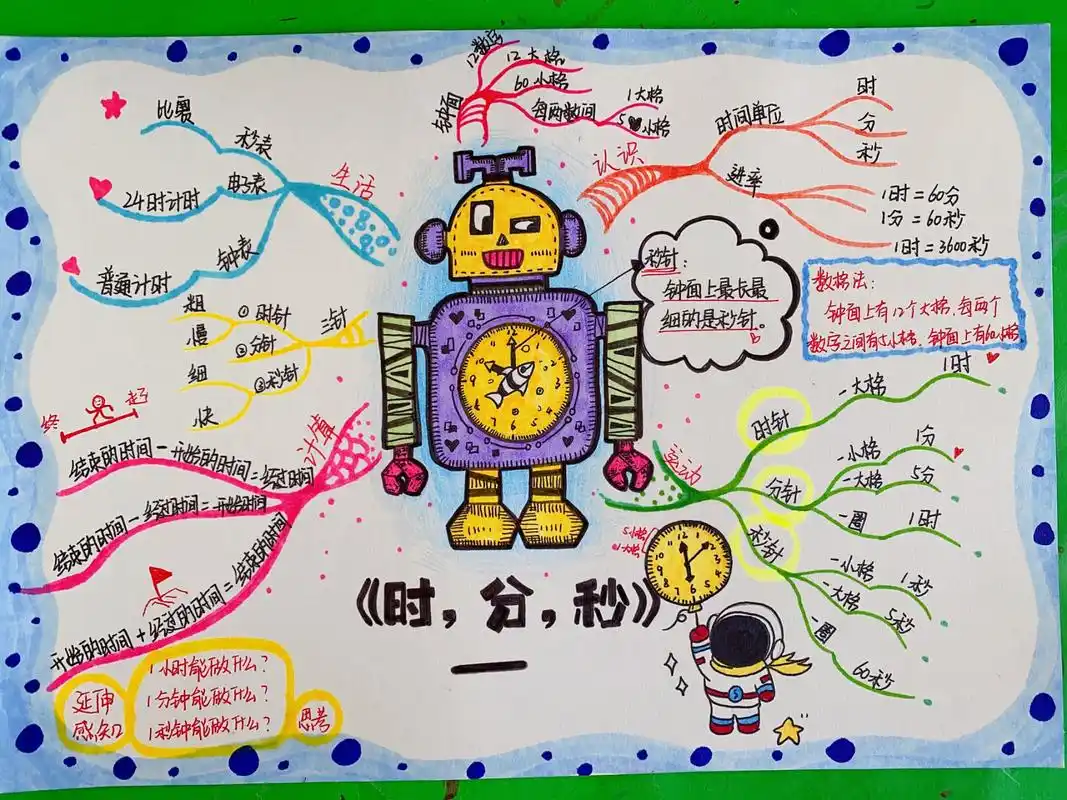 《时，分，秒》
钟面
12数字
12大格
60小格
每两数间
1大格
5小格
认识
时间单位
时
分
秒
进率
1时=60分
1分=60秒
1时=3600秒
秒针：
钟面上最长最
细的是秒针。
数格法：
钟面上有12个大格，每两个
数字之间有5小格，钟面上有60小格
运动
时针
一大格
1时
分针
一小格
1分
一大格
5分
一圈
1时
秒针
一小格
1秒
一大格
5秒
一圈
60秒
5小格
生活
秒表
比赛
电子表
24时计时
钟表
普通计时
三针
①时针
②分针
③秒针
粗
慢
细
快
计算
终
起
结束的时间-开始的时间=经过时间
结束的时间-经过时间=开始时间
开始的时间+经过的时间=结束的时间
延伸
感知
1小时能做什么？
1分钟能做什么？
1秒钟能做什么？
思考